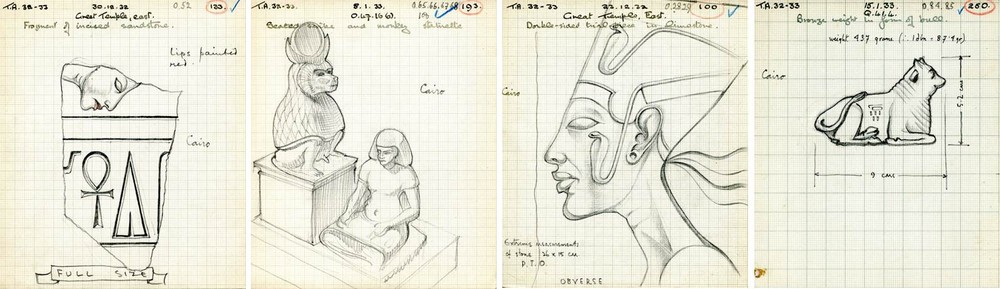 T.A. 32-33
30.12.32
0.32
133
Great Temple, east.
Fragment of incised sandstone.
Lips painted
red.
Cairo
FULL SIZE
T.A. 32-33.
8.1.33.
0.65.66.67.68
193.
0.47.16(6).
and monkey statuette
Cairo
T.A. 32-33
22.12.32
0.28.29
100
Great Temple, East.
Double-sided trial piece in limestone.
Cairo
Extreme measurements
of stone 26 x 15 cms
P.T.O.
OBVERSE
T.A. 32-33.
15.1.33.
0.84.85
250.
Q.41.4.
Bronze weight in form of bull.
weight 437 grams (∴ 1 dbn = 87.4 gr)
Cairo
5.2 cms
9 cms